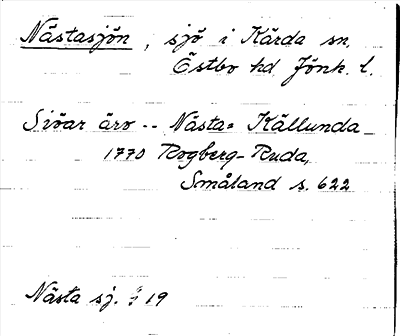 Nästasjön, sjö i Kärda sn,
Östbo hd Jönk. l.
Siöar äro -- Nästa= Källunda
1770 Rogberg-Ruda,
Småland s. 622
Nästa sj. 19